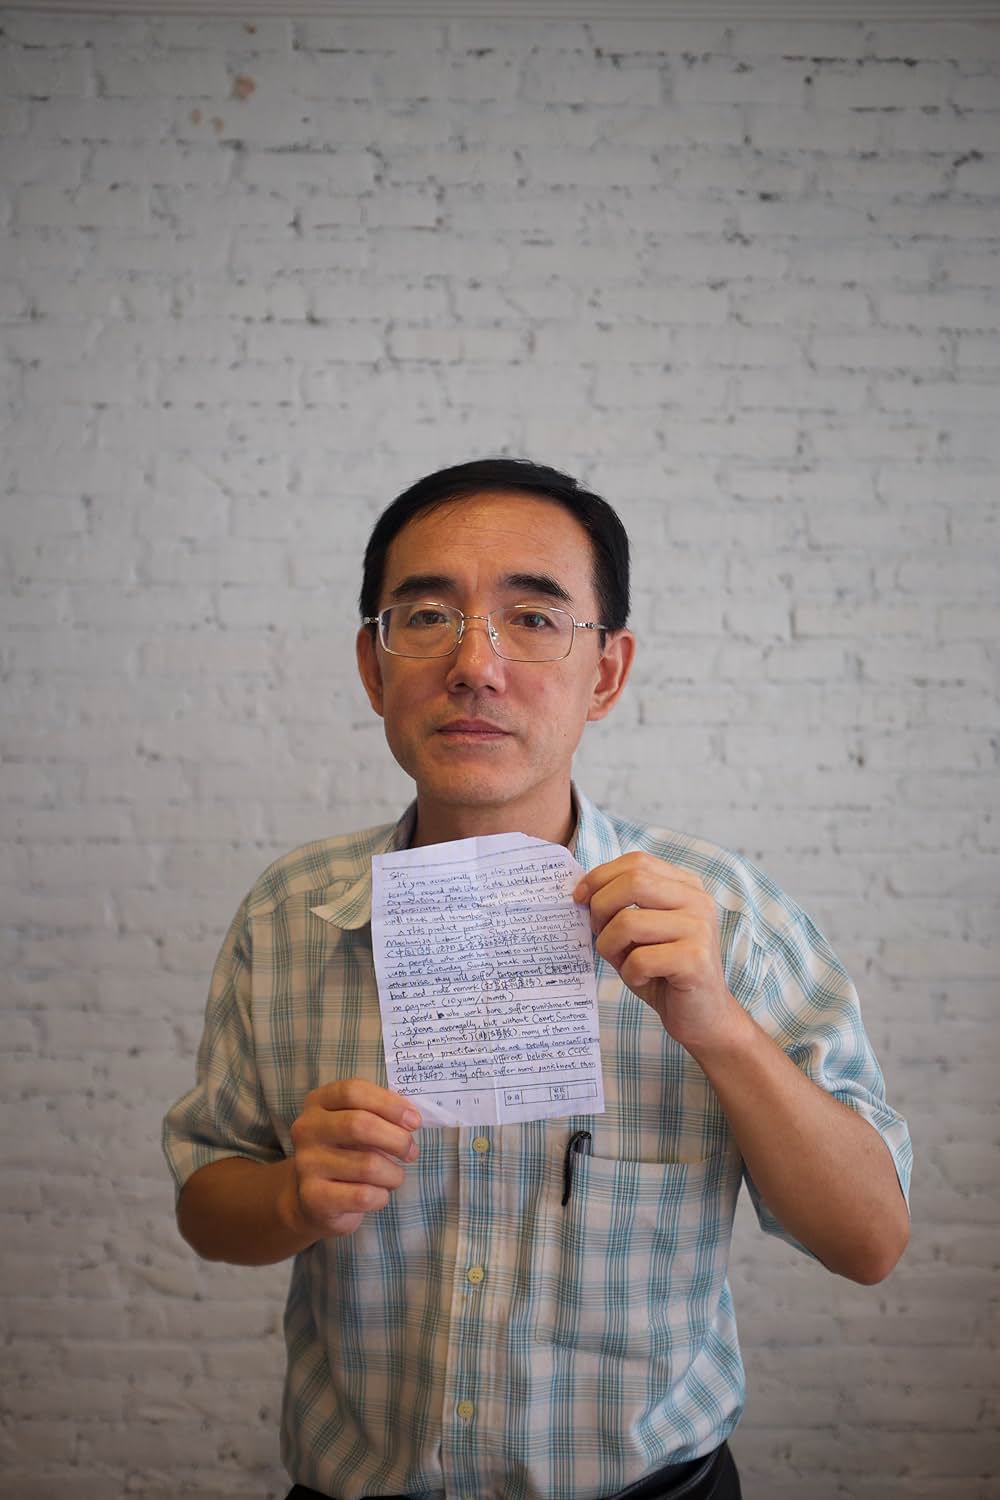 Sir:
If you occasionally buy this product, please
kindly resend this letter to the World Human Right
Organization. Thousands people here who are under
the persicution of the Chinese Communist Party Gover
will thank and remember you forever.
This product produced by Unit 8, Department 2
Masanjia Labour Camp, Shenyang, Liaoning, China
(中国,辽宁,沈阳,马三家劳动教养院二所八大队)
people who work here have to work 15 hours a day
with out Saturday, Sunday break and any holidays,
otherwise, they will suffer torturement
beat and rude remark nearly
no payment (10 yuan / 1 month)
people who work here, suffer punishment
1~3 years averagelly, but without Court Sentence
(unlaw punishment) many of them are
Falun gong practitioner, who are totally innocent people
only because they have different believe to CCPG
they often suffer more punishment than
others.
年 月 日